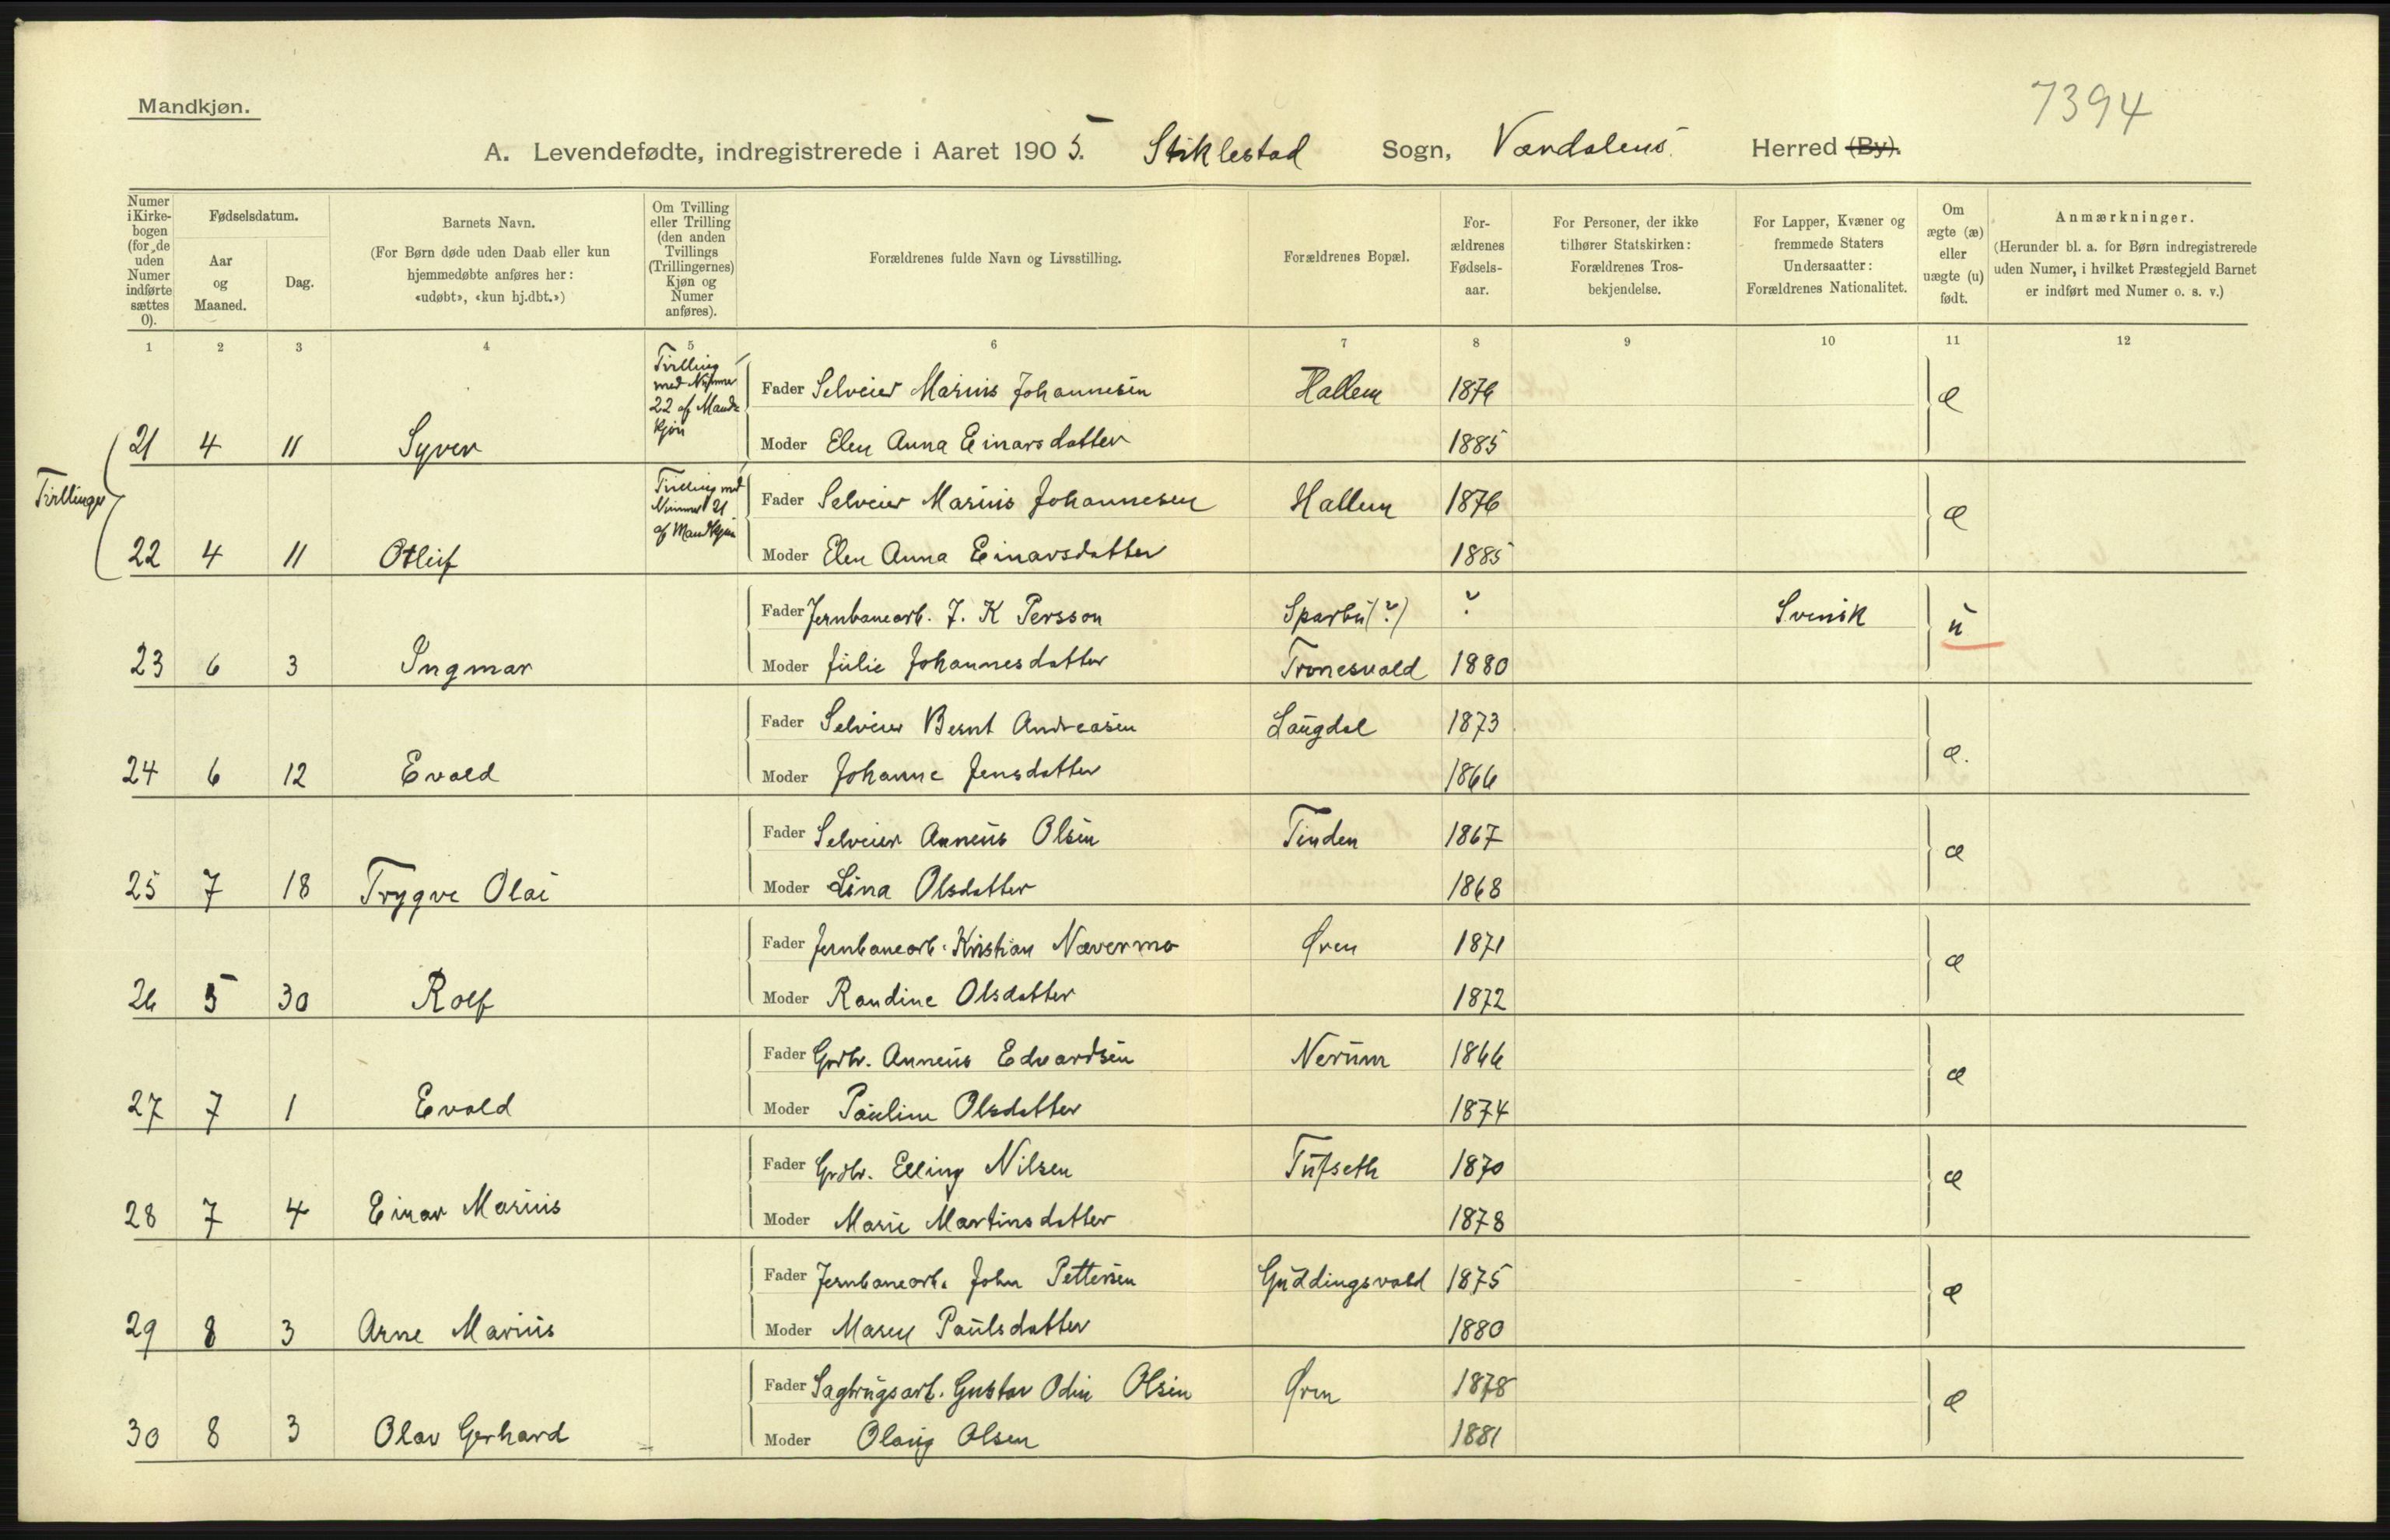 Mandkjøn.
7394
A. Levendefødte, indregistrerede i Aaret 1905. Stiklestad Sogn, Værdalens Herred (By).
Numer i Kirkebogen (for de uden Numer indførte sættes 0).
Fødselsdatum.
Aar og Maaned.
Dag.
Barnets Navn.
(For Børn døde uden Daab eller kun hjemmedøbte anføres her: «udøbt», «kun hj.dbt.»)
Om Tvilling eller Trilling (den anden Tvillings (Trillingernes) Kjøn og Numer anføres).
Forældrenes fulde Navn og Livsstilling.
Forældrenes Bopæl.
Forældrenes Fødselsaar.
For Personer, der ikke tilhører Statskirken: Forældrenes Trosbekjendelse.
For Lapper, Kvæner og fremmede Staters Undersaatter: Forældrenes Nationalitet.
Om ægte (æ) eller uægte (u) født.
Anmærkninger.
(Herunder bl. a. for Børn indregistrerede uden Numer, i hvilket Præstegjeld Barnet er indført med Numer o. s. v.)
1 2 3 4 5 6 7 8 9 10 11 12
Tvilling med Nummer 22 af Mandkjøn
Fader Selveier Marius Johannesen Hallem 1876 æ
21 4 11 Syver Moder Elen Anna Einarsdatter 1885
Tvillinger
Tvilling med Nummer 21 af Mandkjøn
Fader Selveier Marius Johannesen Hallem 1876 æ
22 4 11 Otleif Moder Elen Anna Einarsdatter 1885
Fader Jernbanearb. J. K Persson Sparbu (?) ? Svensk u
23 6 3 Ingmar Moder Julie Johannesdatter Tronesvald 1880
Fader Selveier Bernt Andreasen Laugdal 1873 æ.
24 6 12 Evald Moder Johanne Jensdatter 1866
Fader Selveier Anneus Olsen Tinden 1867 æ
25 7 18 Trygve Olai Moder Lina Olsdatter 1868
Fader Jernbanearb. Kristian Nævermo Øren 1871 æ
26 5 30 Rolf Moder Randine Olsdatter 1872
Fader Grdbr. Anneus Edvardsen Nerum 1866 æ
27 7 1 Evald Moder Pauline Olsdatter 1874
Fader Grdbr. Elling Nilsen Tufseth 1870 æ
28 7 4 Einar Marius Moder Marie Martinsdatter 1878
Fader Jernbanearb. John Pettersen Guddingsvald 1875 æ
29 8 3 Arne Marius Moder Maren Paulsdatter 1880
Fader Sagbrugsarb. Gustav Odin Olsen Øren 1878 æ
30 8 3 Olav Gerhard Moder Olaug Olsen 1881